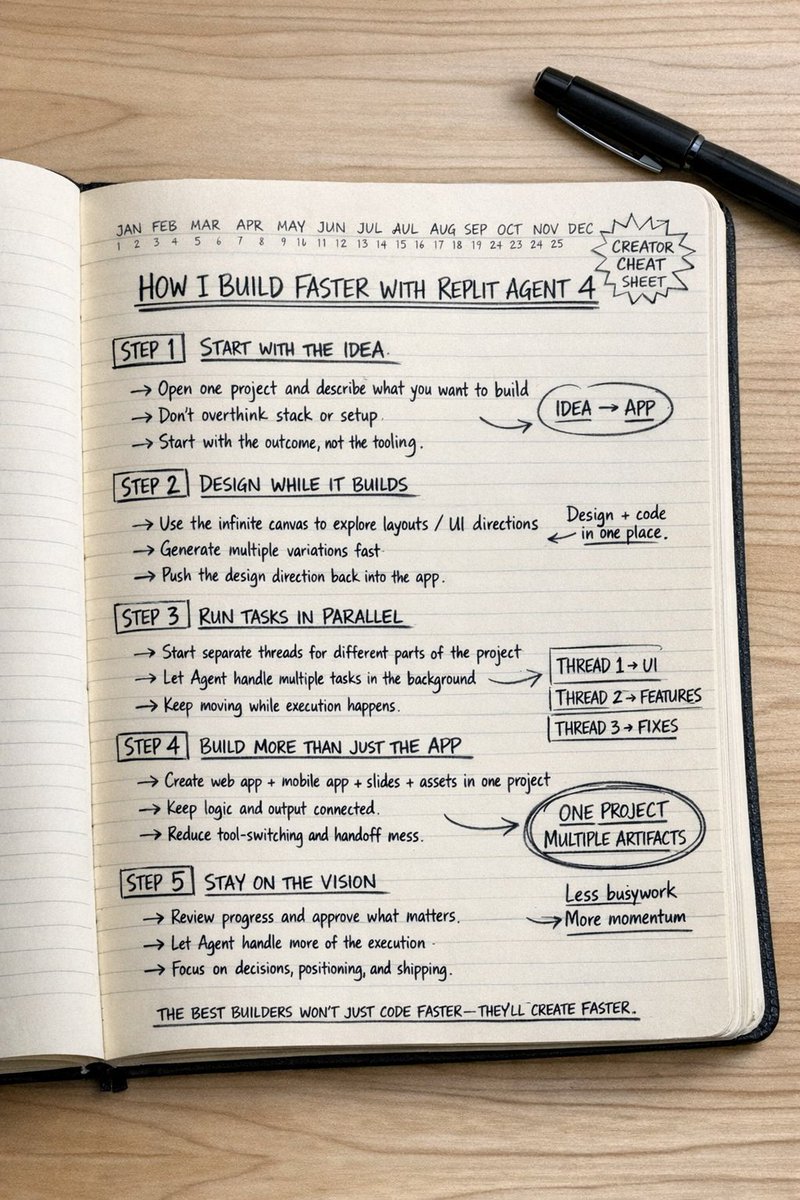 JAN FEB MAR APR MAY JUN JUL AUL AUG SEP OCT NOV DEC
1 2 3 4 5 6 7 8 9 16 11 12 13 14 15 16 17 18 19 24 23 24 25
CREATOR
CHEAT
SHEET
HOW I BUILD FASTER WITH REPLIT AGENT 4
STEP 1 START WITH THE IDEA.
→ Open one project and describe what you want to build
→ Don't overthink stack or setup.
→ Start with the outcome, not the tooling.
IDEA → APP
STEP 2 DESIGN WHILE IT BUILDS
→ Use the infinite canvas to explore layouts / UI directions
→ Generate multiple variations fast
→ Push the design direction back into the app.
Design + code
in one place.
STEP 3 RUN TASKS IN PARALLEL
→ Start separate threads for different parts of the project
→ Let Agent handle multiple tasks in the background
→ Keep moving while execution happens.
THREAD 1 → UI
THREAD 2 → FEATURES
THREAD 3 → FIXES
STEP 4 BUILD MORE THAN JUST THE APP
→ Create web app + mobile app + slides + assets in one project
→ Keep logic and output connected.
→ Reduce tool-switching and handoff mess.
ONE PROJECT
MULTIPLE ARTIFACTS
STEP 5 STAY ON THE VISION
→ Review progress and approve what matters.
→ Let Agent handle more of the execution
→ Focus on decisions, positioning, and shipping.
Less busywork
→ More momentum
THE BEST BUILDERS WON'T JUST CODE FASTER—THEY'LL CREATE FASTER.